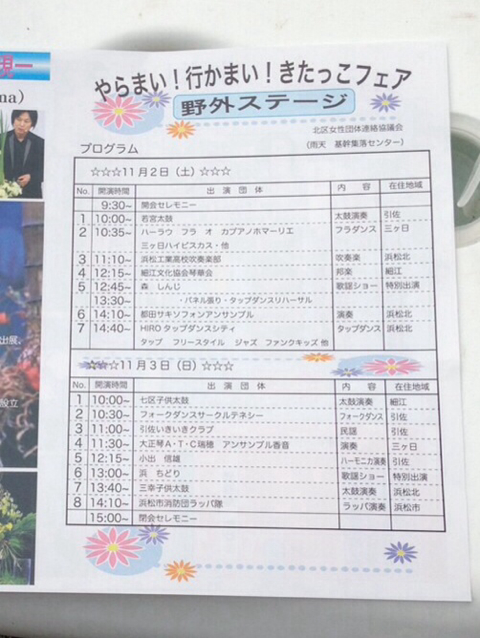 現一
na)
出展、
設立
やらまい！行かまい！きたっこフェア
野外ステージ
北区女性団体連絡協議会
プログラム （雨天 基幹集落センター）
☆☆☆11月2日（土）☆☆☆
No. 開演時間 出演団体 内容 在住地域
9:30~ 開会セレモニー
1 10:00~ 若宮太鼓 太鼓演奏 引佐
2 10:35~ ハーラウ フラ オ カプアノホマーリエ フラダンス 三ヶ日
三ヶ日ハイビスカス・他
3 11:10~ 浜松工業高校吹奏楽部 吹奏楽 浜松北
4 12:15~ 細江文化協会琴華会 邦楽 細江
5 12:45~ 森 しんじ 歌謡ショー 特別出演
13:30~ ・パネル張り・タップダンスリハーサル
6 14:10~ 都田サキソフォンアンサンブル 演奏 浜松北
7 14:40~ HIROタップダンスシティ タップダンス 浜松北
タップ フリースタイル ジャズ ファンクキッズ他
☆☆☆11月3日（日）☆☆☆
No. 開演時間 出演団体 内容 在住地域
1 10:00~ 七区子供太鼓 太鼓演奏 細江
2 10:30~ フォークダンスサークルテネシー フォークダンス 引佐
3 11:00~ 引佐いきいきクラブ 民謡 引佐
4 11:30~ 大正琴A・T・C瑞穂 アンサンブル香音 演奏 三ヶ日
5 12:15~ 小出 信雄 ハーモニカ演奏 引佐
6 13:00~ 浜 ちどり 歌謡ショー 特別出演
7 13:40~ 三幸子供太鼓 太鼓演奏 浜松北
8 14:10~ 浜松市消防団ラッパ隊 ラッパ演奏 浜松市
15:00~ 閉会セレモニー